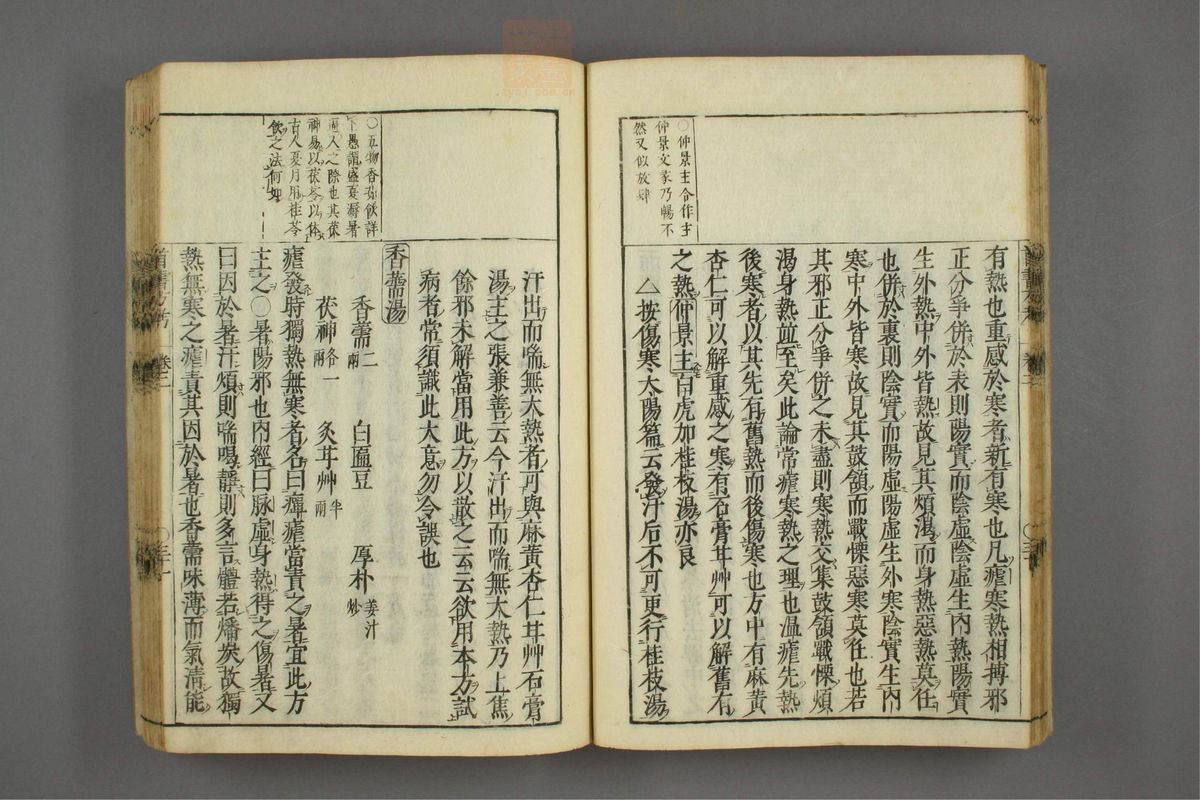 〇仲景主合作主
仲景文蒙乃暢不
然又似放肆
有熱也重感於寒者新有寒也凡瘧寒熱相搏邪
正分爭併於表則陽實而陰虛陰虛生內熱陽實
生外熱中外皆熱故見其煩渴而身熱惡熱莫任
也併於裏則陰實而陽虛陽虛生外寒陰實生內
寒中外皆寒故見其鼓頷而戰慄惡寒莫任也若
其邪正分爭併之未盡則寒熱交集鼓頷戰慄煩
渴身熱並至矣此論常瘧寒熱之理也溫瘧先熱
後寒者以其先有舊熱而後傷寒也方中有麻黃
杏仁可以解重感之寒有石膏甘艸可以解舊有
之熱仲景主白虎加桂枝湯亦良
△按傷寒太陽篇云發汗后不可更行桂枝湯
汗出而喘無大熱者可與麻黃杏仁甘艸石膏
湯主之張兼善云今汗出而喘無大熱乃上焦
餘邪未解當用此方以散之云云欲用本方試
病者常須識此大意勿令誤也
〇五物香薷飲詳
下愚謂盛夏溽暑
逼人之際也其茯
神易以茯苓以体
古人夏月用桂苓
飲之法何如
香薷湯
香薷二兩 白匾豆 厚朴姜汁炒
茯神各一兩 炙甘艸半兩
瘧發時獨熱無寒者名曰癉瘧當責之暑宜此方
主之〇暑陽邪也內經曰脉虛身熱得之傷暑又
曰因於暑汗煩則喘喝靜則多言體若燔炭故獨
熱無寒之瘧責其因於暑也香薷味薄而氣清能